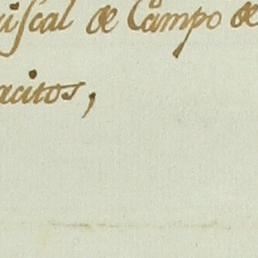 uiscal de Campo de
acitos,